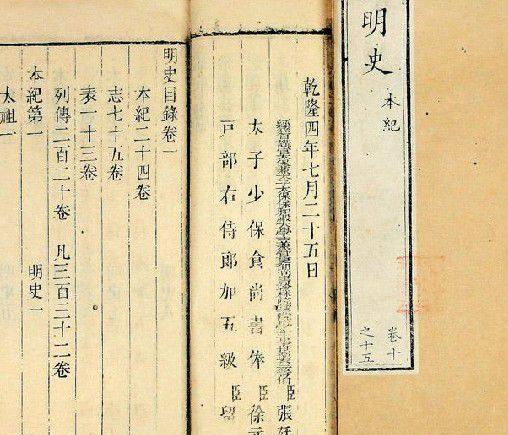 明史
本紀
卷十
之十五
乾隆四年七月二十五日
臣張廷
太子少保食尚書俸臣徐元
戸部右侍郎加五級臣留
明史目錄卷一
本紀二十四卷
志七十五卷
表一十三卷
列傳二百二十卷 凡三百三十二卷
本紀第一 明史一
太祖一